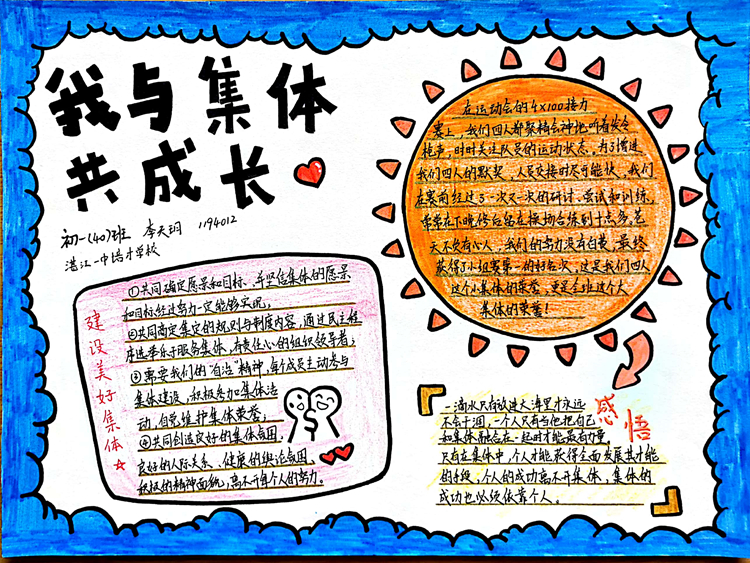 我与集体
共成长
初一(40)班 李天玥 1194012
湛江一中培才学校
建设美好集体
①共同确定愿景和目标、并坚信集体的愿景
和目标经过努力一定能够实现;
②共同商定集定的规则与制度内容,通过民主程
序选举乐于服务集体,有责任心的组织领导者;
③需要我们的"自治"精神,每个成员主动参与
集体建设,积极参加集体活
动,自觉维护集体荣誉;
④共同创造良好的集体氛围
良好的人际关系、健康的舆论氛围、
积极的精神面貌,离不开每个人的努力。
在运动会的4×100接力
赛上,我们四人都聚精会神地听着发令
枪声,时时关注队员的运动状态。为了增进
我们四人的默契,人员交接时尽可能快、我们
在赛前经过了一次又一次的研讨、尝试和训练、
常常在下晚修后留在操场合练到十点多,苍
天不负有心人,我们的努力没有白费、最终
获得了小组赛第一的好名次,这是我们四人
这个小集体的荣誉,更是全班这个大
集体的荣誉!
感悟
一滴水只有放进大海里才永远
不会干涸,一个人只有当他把自己
和集体融合在一起时才能最有力量。
只有在集体中,个人才能获得全面发展其才能
的手段,个人的成功离不开集体,集体的
成功也必须依靠个人。